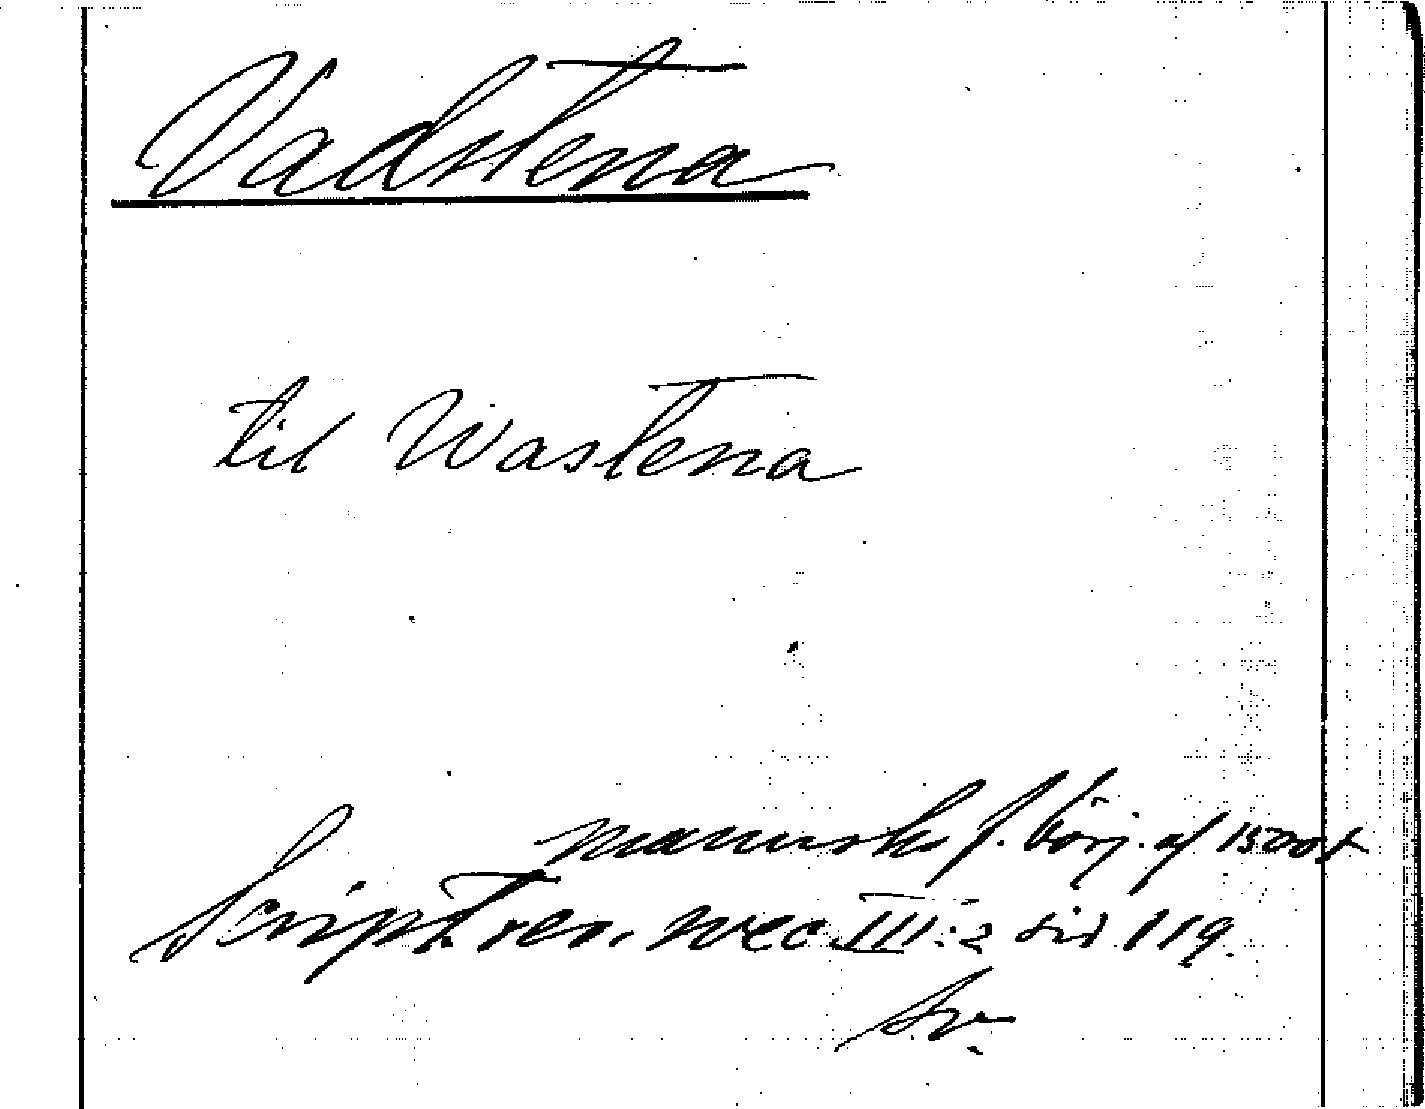 Vadstena
til Wastena
manuskr f. börj. af 1500 t
Script. rer. svec III:2 sid 119.
Sv.